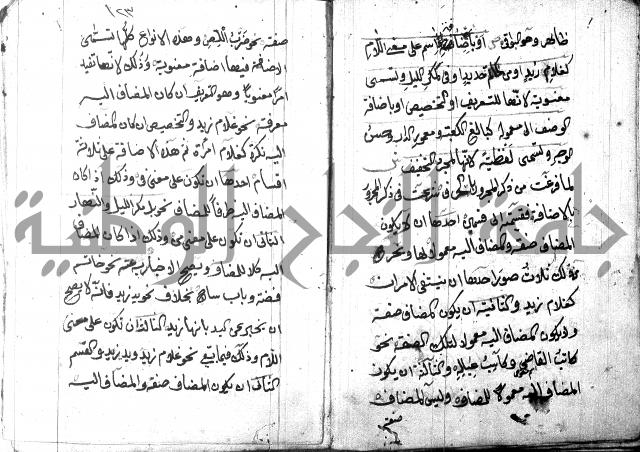 ظاهر وهو البوقي او باضافة اسم على معنى اللام
كغلام زيد او من كخاتم حديد او في كمكر الليل وتسمى
معنوية لانها للتعريف او التخصيص او باضافة
الوصف الى معموله كبالغ الكعبة ومعمور الدار وحسن
الوجه وتسمى لفظية لانها لمجرد التخفيف
لما فرغت من ذكر المجرور بالحرف شرعت في ذكر المجرور
بالاضافة وقسمته الى قسمين احدهما ان لا يكون
المضاف صفة والمضاف اليه معمولا لها ويخرج
من ذلك ثلاث صور احدها ان ينتفي الامران
كغلام زيد والثانية ان يكون المضاف صفة
ولا يكون المضاف اليه معمولا لتلك الصفة نحو
كاتب القاضي وكاسب عياله والثالثة ان يكون
المضاف اليه معمولا للمضاف وليس المضاف
صفة
١٢٣
صفة نحو ضرب اللص وهذه الانواع كلها تسمى
الاضافة فيها اضافة معنوية وذلك لانها تفيد
امرا معنويا وهو التعريف ان كان المضاف اليه
معرفة نحو غلام زيد والتخصيص ان كان المضاف
اليه نكرة كغلام امرأة ثم هذه الاضافة على ثلاثة
اقسام احدها ان تكون على معنى في وذلك اذا كان
المضاف اليه ظرفا للمضاف نحو بل مكر الليل والنهار
الثاني ان تكون على معنى من وذلك اذا كان المضاف
اليه كلا للمضاف ويصح الاخبار به عنه نحو خاتم
فضة وباب ساج بخلاف نحو يد زيد فانه لا يصح
ان يخبر عن اليد بانها زيد الثالث ان تكون على معنى
اللام وذلك فيما بقي نحو غلام زيد ويد زيد والقسم
الثاني ان يكون المضاف صفة والمضاف اليه
جامعة النجاح الوطنية